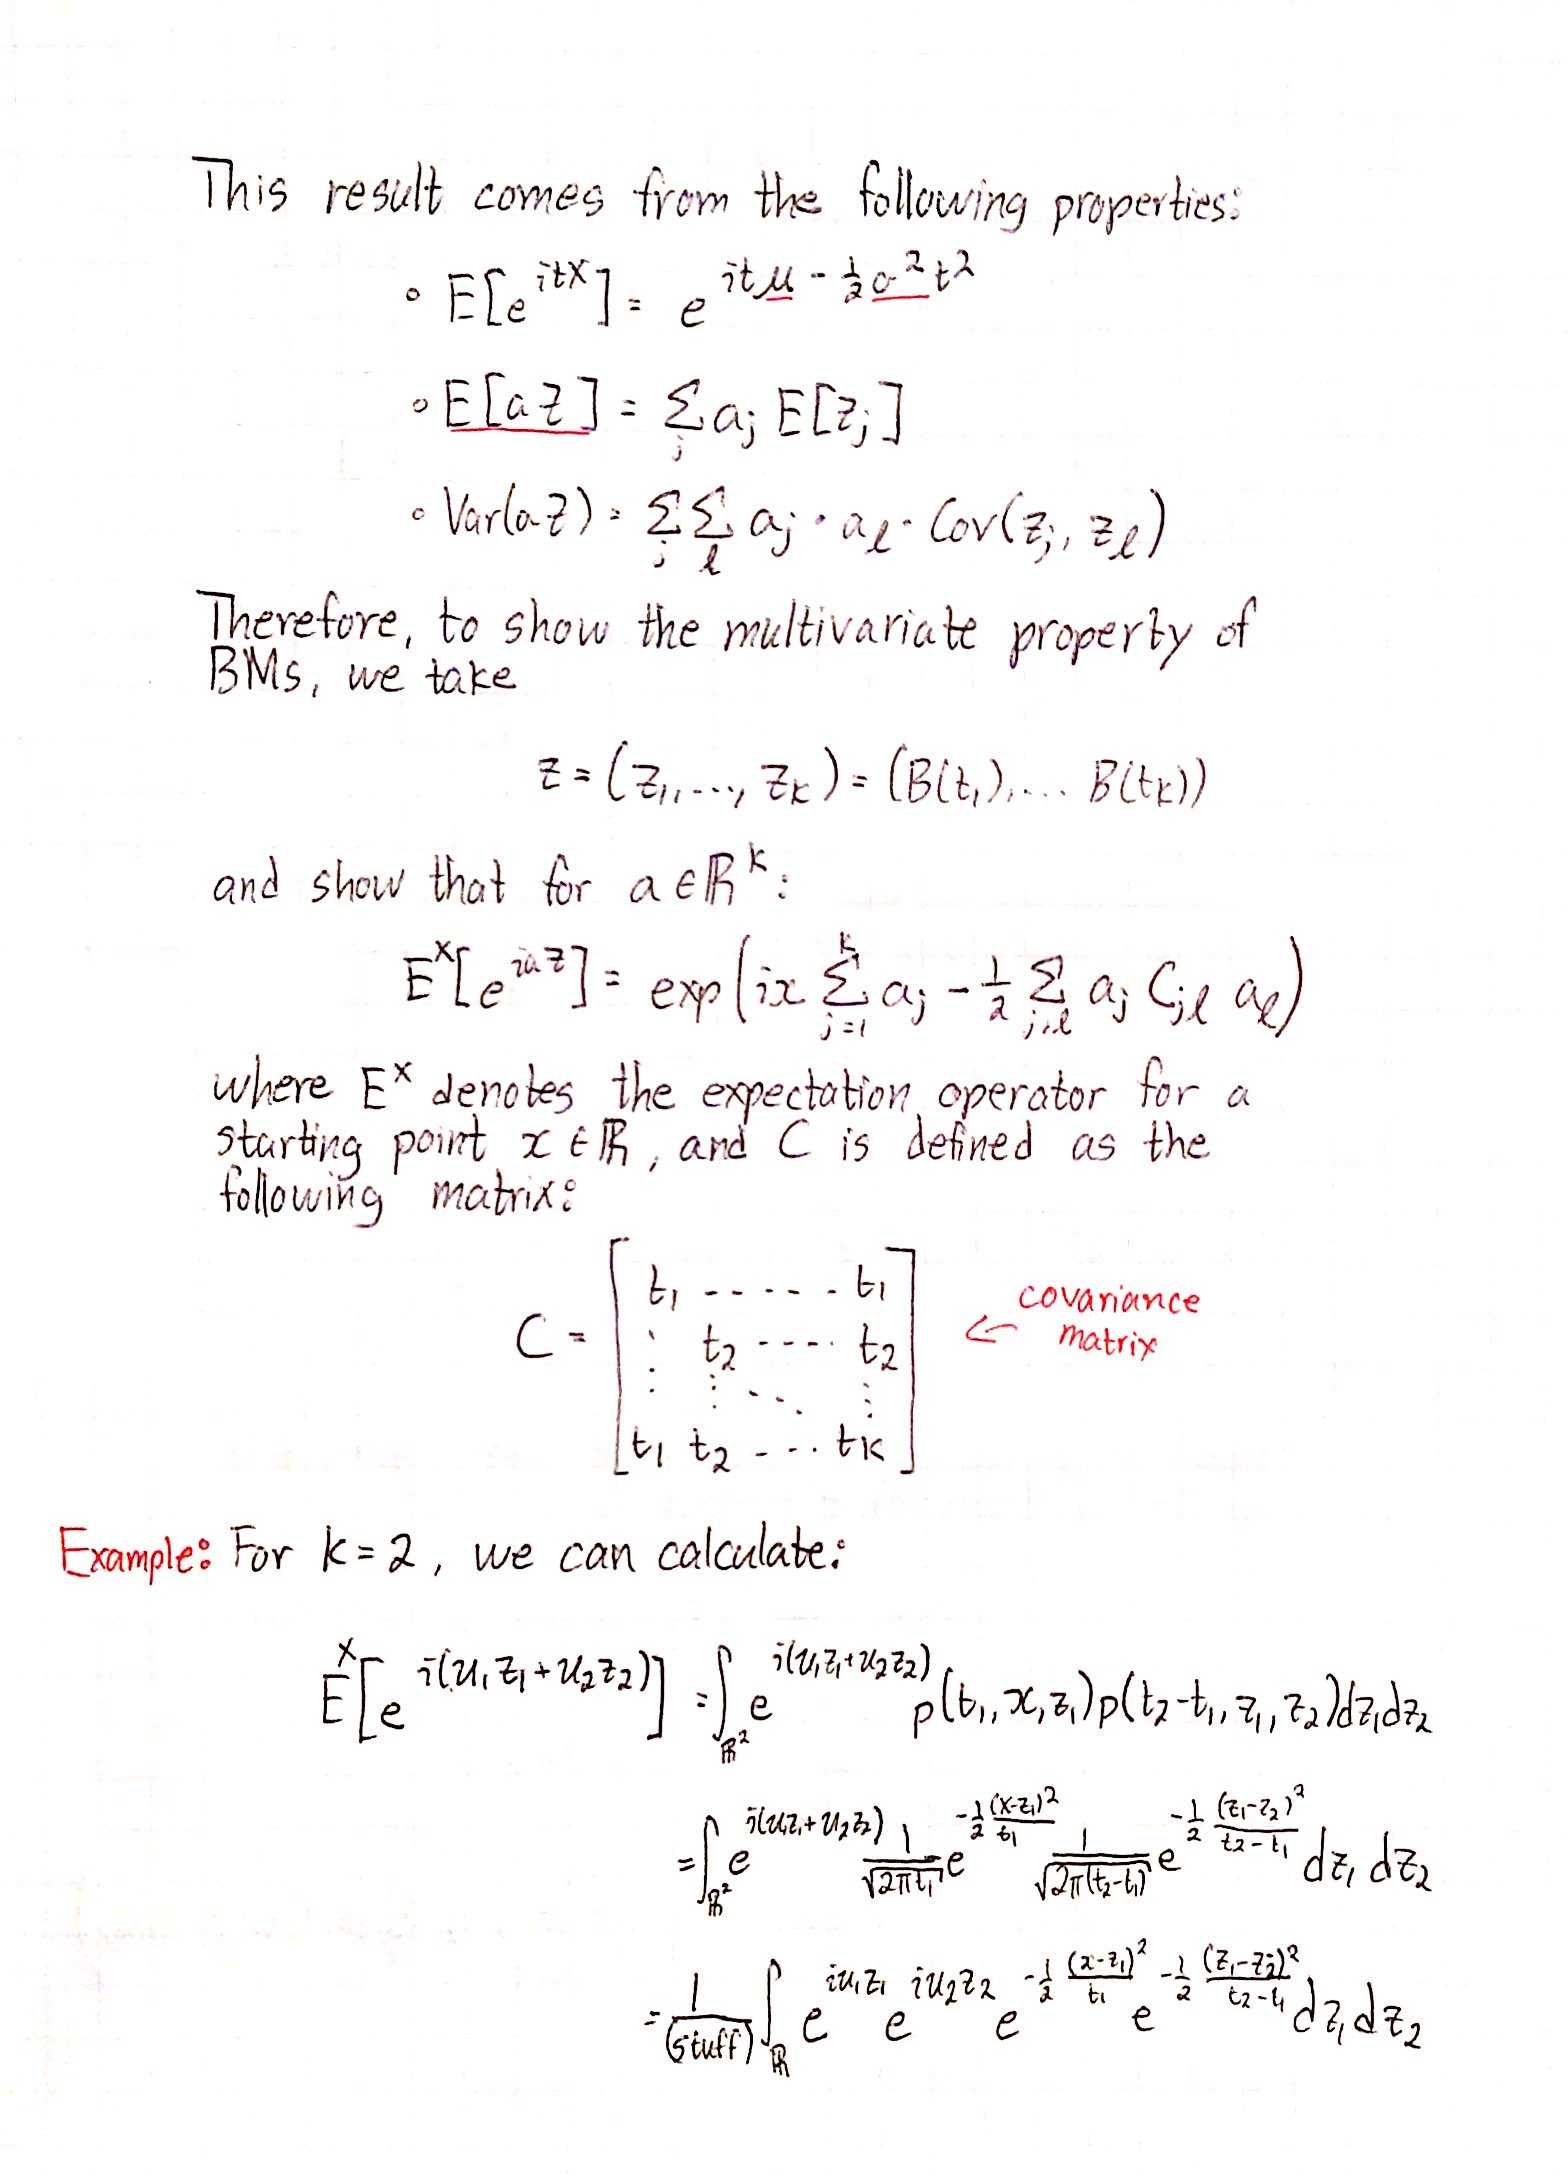 This result comes from the following properties:
∘ E[e^{itX}] = e^{itμ - 1/2 σ^2 t^2}
∘ E[aZ] = Σ_j a_j E[z_j]
∘ Var(aZ) = Σ_j Σ_l a_j · a_l · Cov(z_j, z_l)
Therefore, to show the multivariate property of
BMs, we take
z = (z_1, ..., z_k) = (B(t_1), ... B(t_k))
and show that for a ∈ ℝ^k:
E^x[e^{iaz}] = exp(ix Σ_{j=1}^k a_j - 1/2 Σ_{j,l} a_j C_{jl} a_l)
where E^x denotes the expectation operator for a
starting point x ∈ ℝ, and C is defined as the
following matrix:
C = [ t_1 ...... t_1
⋮ t_2 .... t_2
⋮ ⋮ ⋱ ⋮
t_1 t_2 ... t_k ]
← covariance
matrix
Example: For k = 2, we can calculate:
E^x[e^{i(u_1 z_1 + u_2 z_2)}] = ∫_{ℝ^2} e^{i(u_1 z_1 + u_2 z_2)} p(t_1, x, z_1) p(t_2 - t_1, z_1, z_2) dz_1 dz_2
= ∫_{ℝ^2} e^{i(u_1 z_1 + u_2 z_2)} 1/√(2πt_1) e^{-1/2 (x-z_1)^2/t_1} 1/√(2π(t_2-t_1)) e^{-1/2 (z_1-z_2)^2/(t_2-t_1)} dz_1 dz_2
= 1/(stuff) ∫_ℝ e^{iu_1 z_1} e^{iu_2 z_2} e^{-1/2 (x-z_1)^2/t_1} e^{-1/2 (z_1-z_2)^2/(t_2-t_1)} dz_1 dz_2